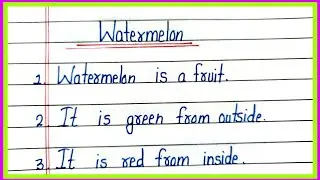 Watermelon
1. Watermelon is a fruit.
2. It is green from outside.
3. It is red from inside.